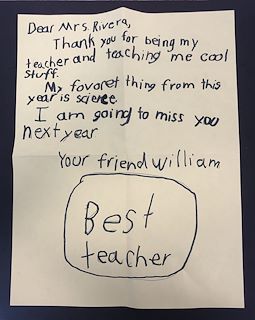 Dear Mrs. Rivera,
Thank you for being my
teacher and teaching me cool
stuff.
My favoret thing from this
year is sciece
I am going to miss you
next year
Your friend william
Best
teacher